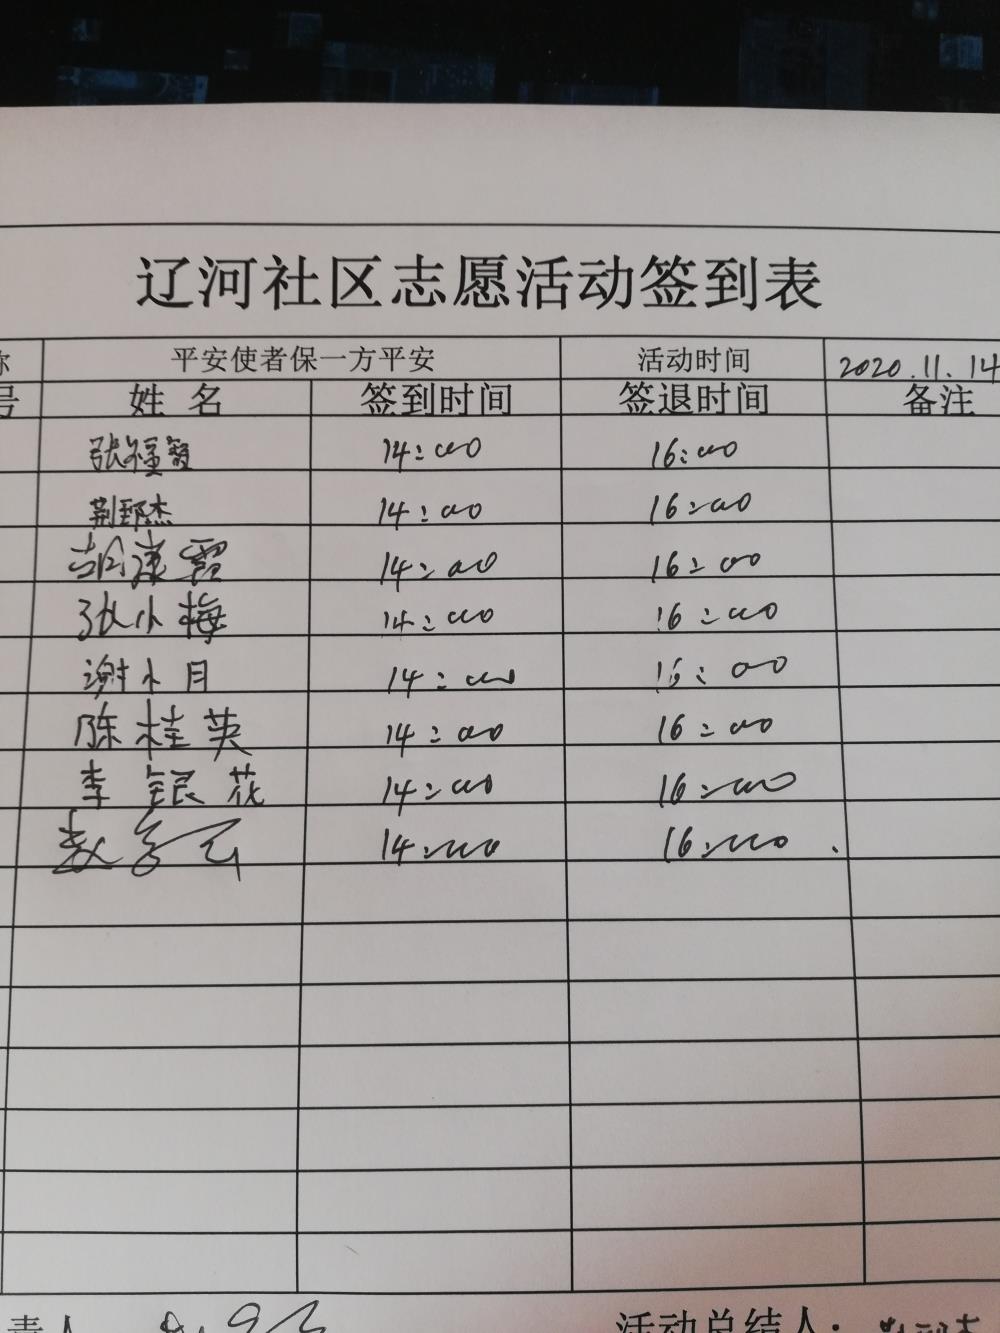 辽河社区志愿活动签到表
称 平安使者保一方平安 活动时间 2020.11.14
号 姓名 签到时间 签退时间 备注
张 14:00 16:00
荆 杰 14:00 16:00
胡 霞 14:00 16:00
张小梅 14:00 16:00
谢小月 14:00 16:00
陈桂英 14:00 16:00
李银花 14:00 16:00
赵 14:00 16:00
责人 活动总结人: